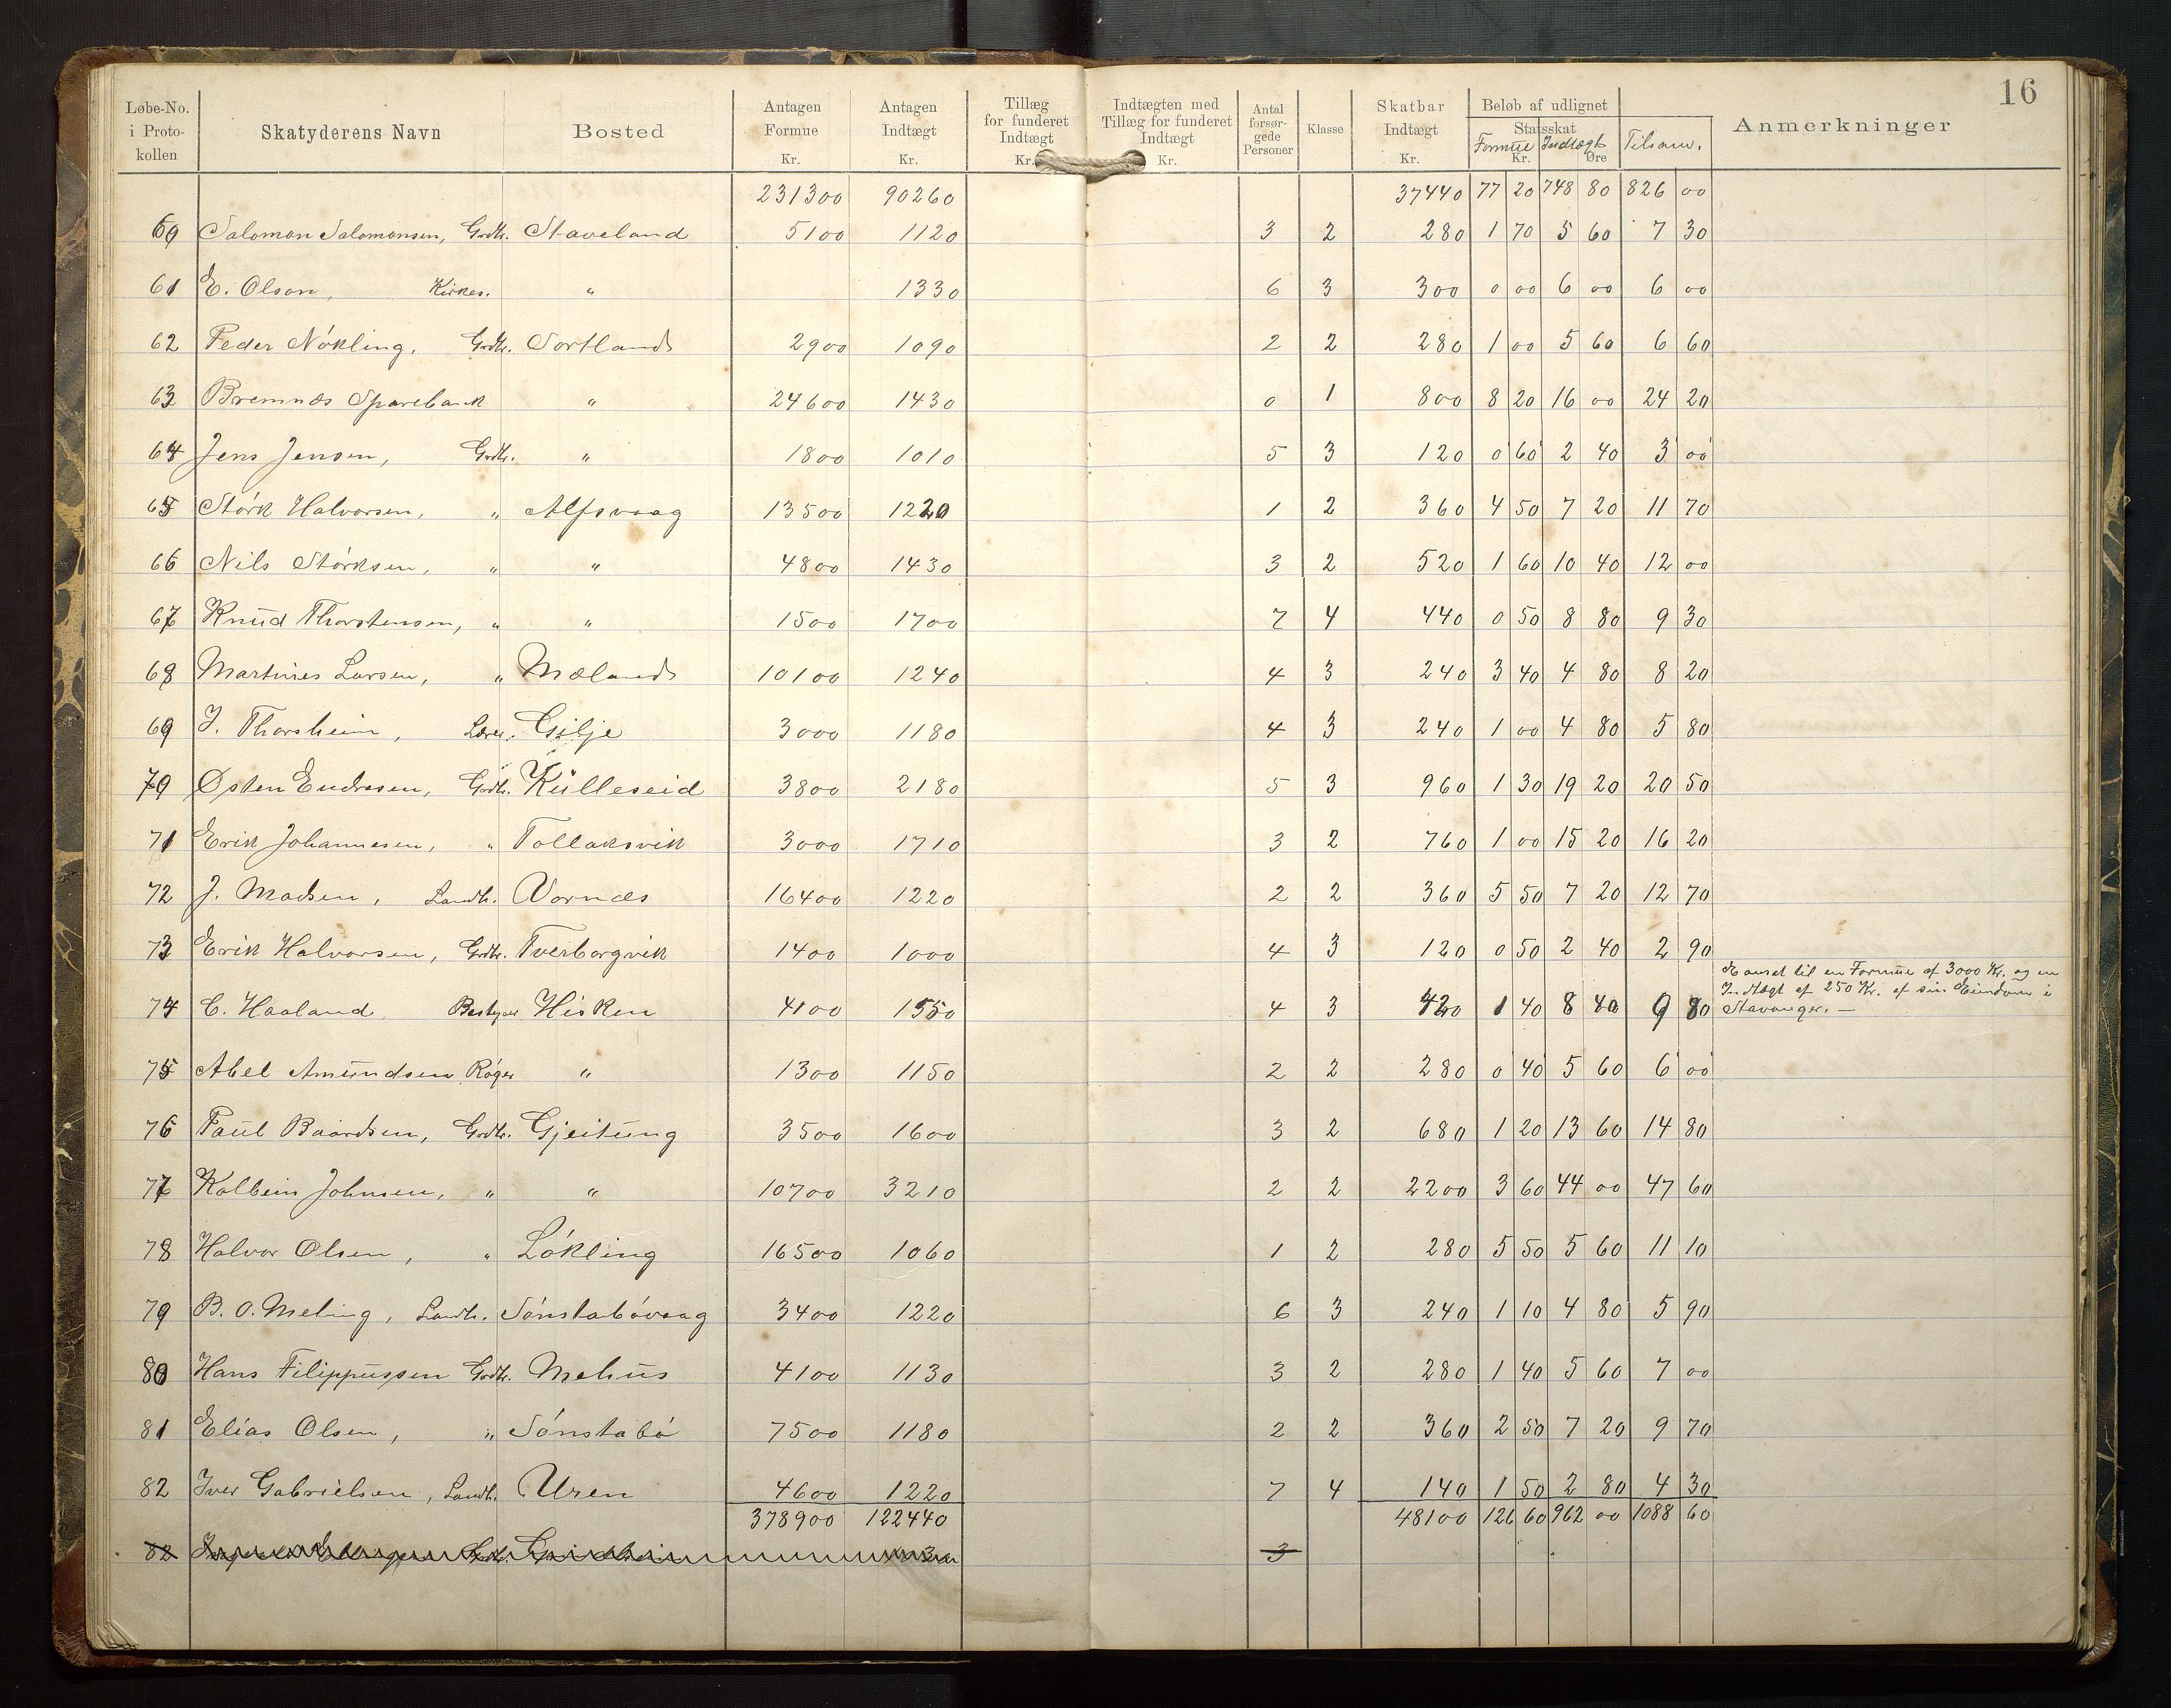 16
Løbe-No. i Proto- kollen | Skatyderens Navn | Bosted | Antagen Formue Kr. | Antagen Indtægt Kr. | Tillæg for funderet Indtægt Kr. | Indtægten med Tillæg for funderet Indtægt Kr. | Antal forsør- gede Personer | Klasse | Skatbar Indtægt Kr. | Beløb af udlignet Statsskat Formue Kr. Indtægt Øre | Tilsam. | Anmerkninger
231300 90260 37440 77 20 748 80 826 00
60 Salomon Salomonsen, Grdbr. Staveland 5100 1120 3 2 280 1 70 5 60 7 30
61 E. Olson, Kirkes. " 1330 6 3 300 0 00 6 00 6 00
62 Peder Nökling, Grdbr. Sortland 2900 1090 2 2 280 1 00 5 60 6 60
63 Bremnæs Sparebank " 24600 1430 0 1 800 8 20 16 00 24 20
64 Jens Jensen, Grdbr. " 1800 1010 5 3 120 0 60 2 40 3 00
65 Störk Halvorsen, " Alfsvaag 13500 1220 1 2 360 4 50 7 20 11 70
66 Nils Störksen, " " 4800 1430 3 2 520 1 60 10 40 12 00
67 Knud Thorstensen, " " 1500 1700 7 4 440 0 50 8 80 9 30
68 Martines Larsen, " Mæland 10100 1240 4 3 240 3 40 4 80 8 20
69 J. Thorsheim, Lærer. Gilje 3000 1180 4 3 240 1 00 4 80 5 80
70 Østen Endresen, Grdbr. Kulleseid 3800 2180 5 3 960 1 30 19 20 20 50
71 Erik Johannesen, " Tollaksvik 3000 1710 3 2 760 1 00 15 20 16 20
72 J. Madsen, Landh. Vornæs 16400 1220 2 2 360 5 50 7 20 12 70
73 Erik Halvorsen, Grdbr. Tverborgvik 1400 1000 4 3 120 0 50 2 40 2 90
74 C. Haaland, Bestyrer Hisken 4100 1550 4 3 420 1 40 8 40 9 80 Er ansat til en Formue af 3000 Kr. og en
Indtægt af 250 Kr. af sin Eiendom i
Stavanger. —
75 Abel Amundsen Röger " 1300 1150 2 2 280 0 40 5 60 6 00
76 Paul Baardsen, Grdbr. Gjeitung 3500 1600 3 2 680 1 20 13 60 14 80
77 Kolbein Johnsen, " " 10700 3210 2 2 2200 3 60 44 00 47 60
78 Halvor Olsen, " Lökling 16500 1060 1 2 280 5 50 5 60 11 10
79 B. O. Meling, Landh. Sönstabövaag 3400 1220 6 3 240 1 10 4 80 5 90
80 Hans Filippussen Grdbr. Mehus 4100 1130 3 2 280 1 40 5 60 7 00
81 Elias Olsen, " Sönstabö 7500 1180 2 2 360 2 50 7 20 9 70
82 Iver Gabrielsen, Landh. Uren 4600 1220 7 4 140 1 50 2 80 4 30
378900 122440 48100 126 60 962 00 1088 60
82 3